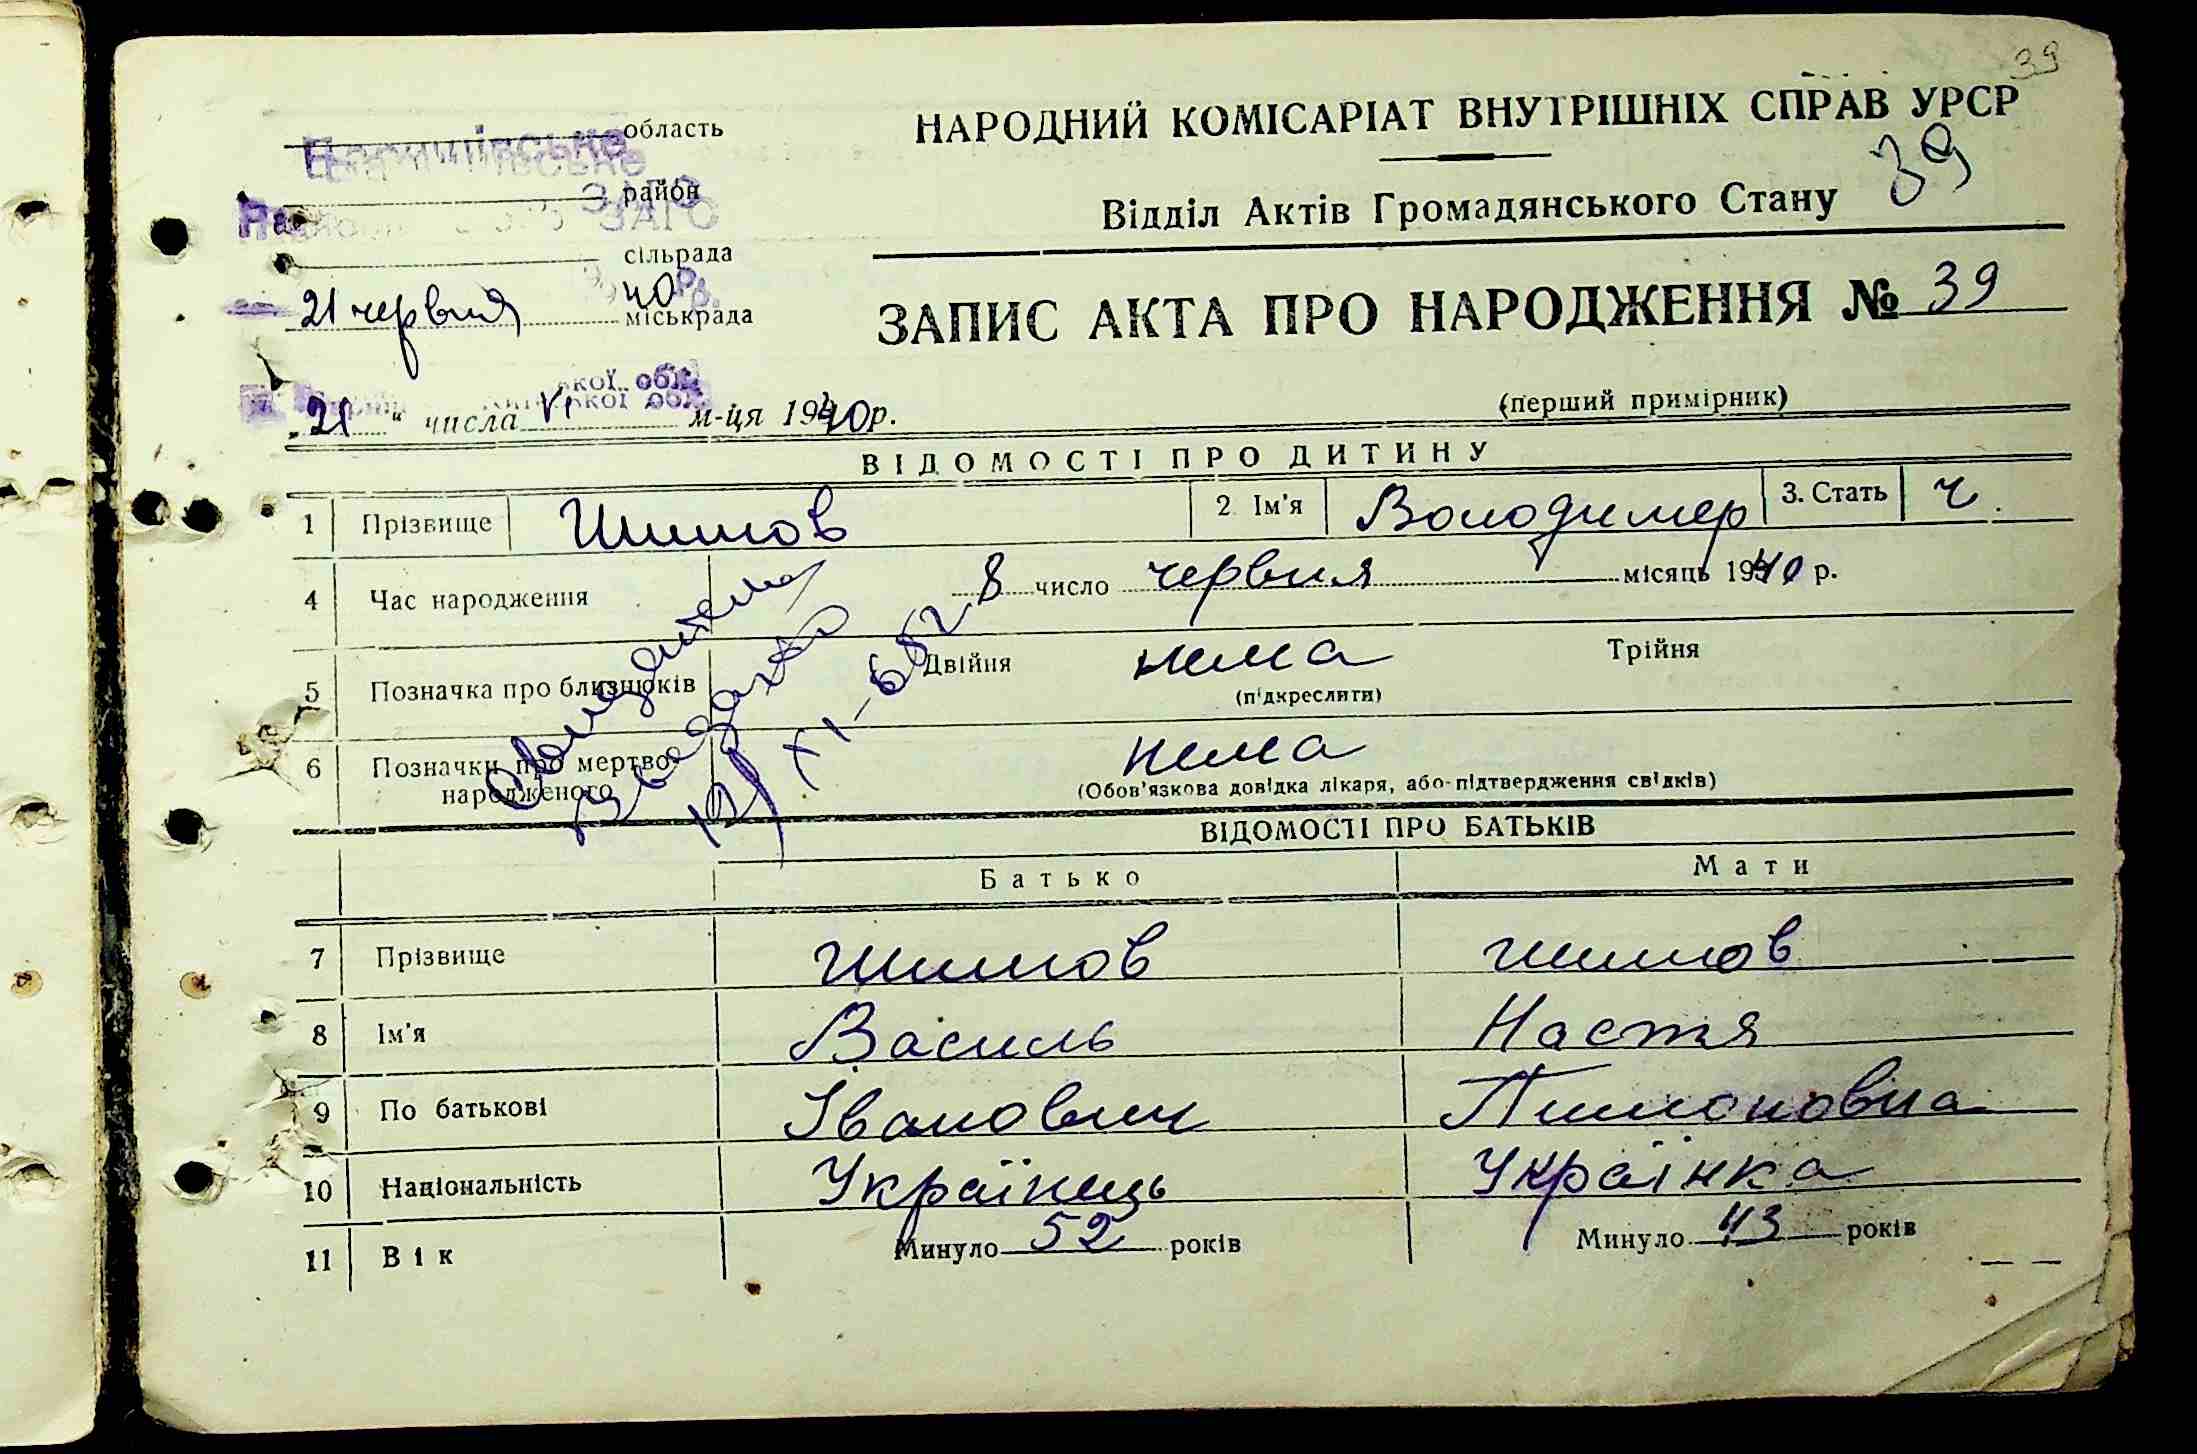 39
область
НАРОДНИЙ КОМІСАРІАТ ВНУТРІШНІХ СПРАВ УРСР
39
район
ЗАГС
Відділ Актів Громадянського Стану
сільрада
21 червня 40 р.
міськрада
ЗАПИС АКТА ПРО НАРОДЖЕННЯ № 39
кої обл.
„21“ числа VI м-ця 1940 р.
(перший примірник)
ВІДОМОСТІ ПРО ДИТИНУ
1 Прізвище Шимов 2. Ім'я Володимер 3. Стать ч.
4 Час народження 8 число червня місяць 1940 р.
5 Позначка про близнюків Двійня нема Трійня
(підкреслити)
6 Позначки про мертвонародженого нема
(Обов'язкова довідка лікаря, або підтвердження свідків)
XI-68
ВІДОМОСТІ ПРО БАТЬКІВ
Батько Мати
7 Прізвище Шимов Шимов
8 Ім'я Василь Настя
9 По батькові Іванович Пимоновна
10 Національність Українець Українка
11 Вік Минуло 52 років Минуло 43 років